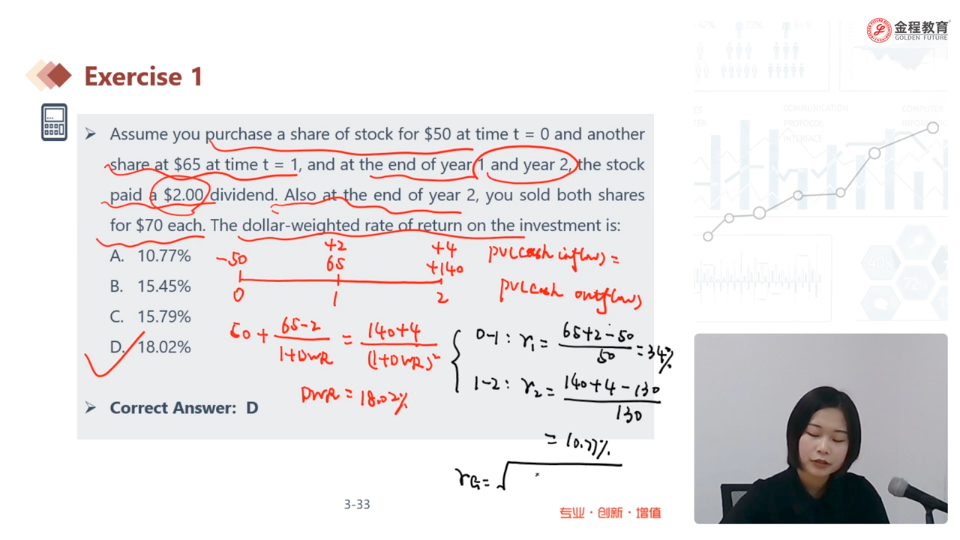 金程教育
GOLDEN FUTURE
Exercise 1
Assume you purchase a share of stock for $50 at time t = 0 and another
share at $65 at time t = 1, and at the end of year 1 and year 2, the stock
paid a $2.00 dividend. Also at the end of year 2, you sold both shares
for $70 each. The dollar-weighted rate of return on the investment is:
A. 10.77%
B. 15.45%
C. 15.79%
D. 18.02%
-50
+2
65
+4
+140
0 1 2
PV(cash inflows) =
PV(cash outflows)
50 + (65-2)/(1+DWR) = (140+4)/(1+DWR)²
DWR = 18.02%
0-1: r₁ = (65+2-50)/50 = 34%
1-2: r₂ = (140+4-130)/130
= 10.77%
rG = √
Correct Answer: D
3-33
专业·创新·增值